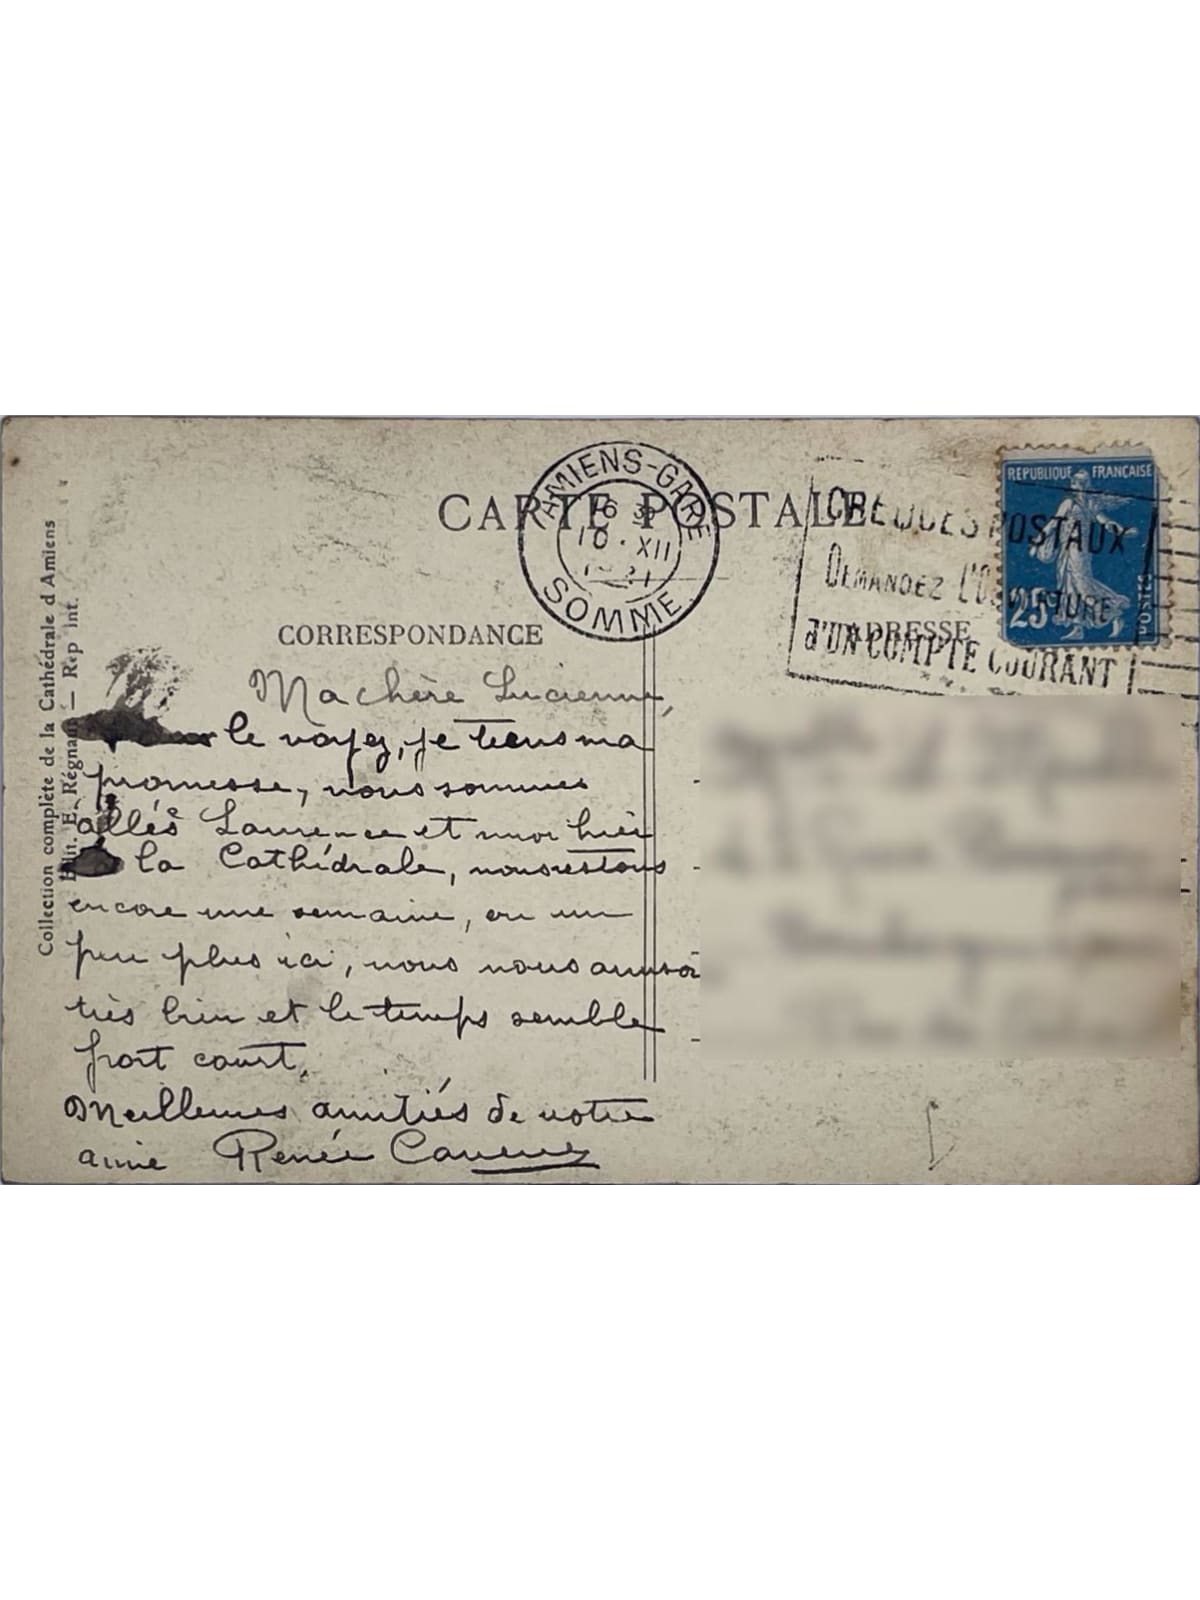 CARTE POSTALE
AMIENS-GARE
XII
SOMME
CHEQUES POSTAUX
DEMANDEZ L'OUVERTURE
d'UN COMPTE COURANT
REPUBLIQUE FRANÇAISE
25c
POSTES
CORRESPONDANCE
ADRESSE
Collection complète de la Cathédrale d'Amiens
Edit. E. Régnault — Rep int.
Ma chère Lucienne,
le voyez, je tiens ma
promesse, nous sommes
allés Laurence et moi hier
la Cathédrale, nous restons
encore une semaine, ou un
peu plus ici, nous nous
très bien et le temps semble
fort court.
Meilleures amitiés de votre
amie Renée